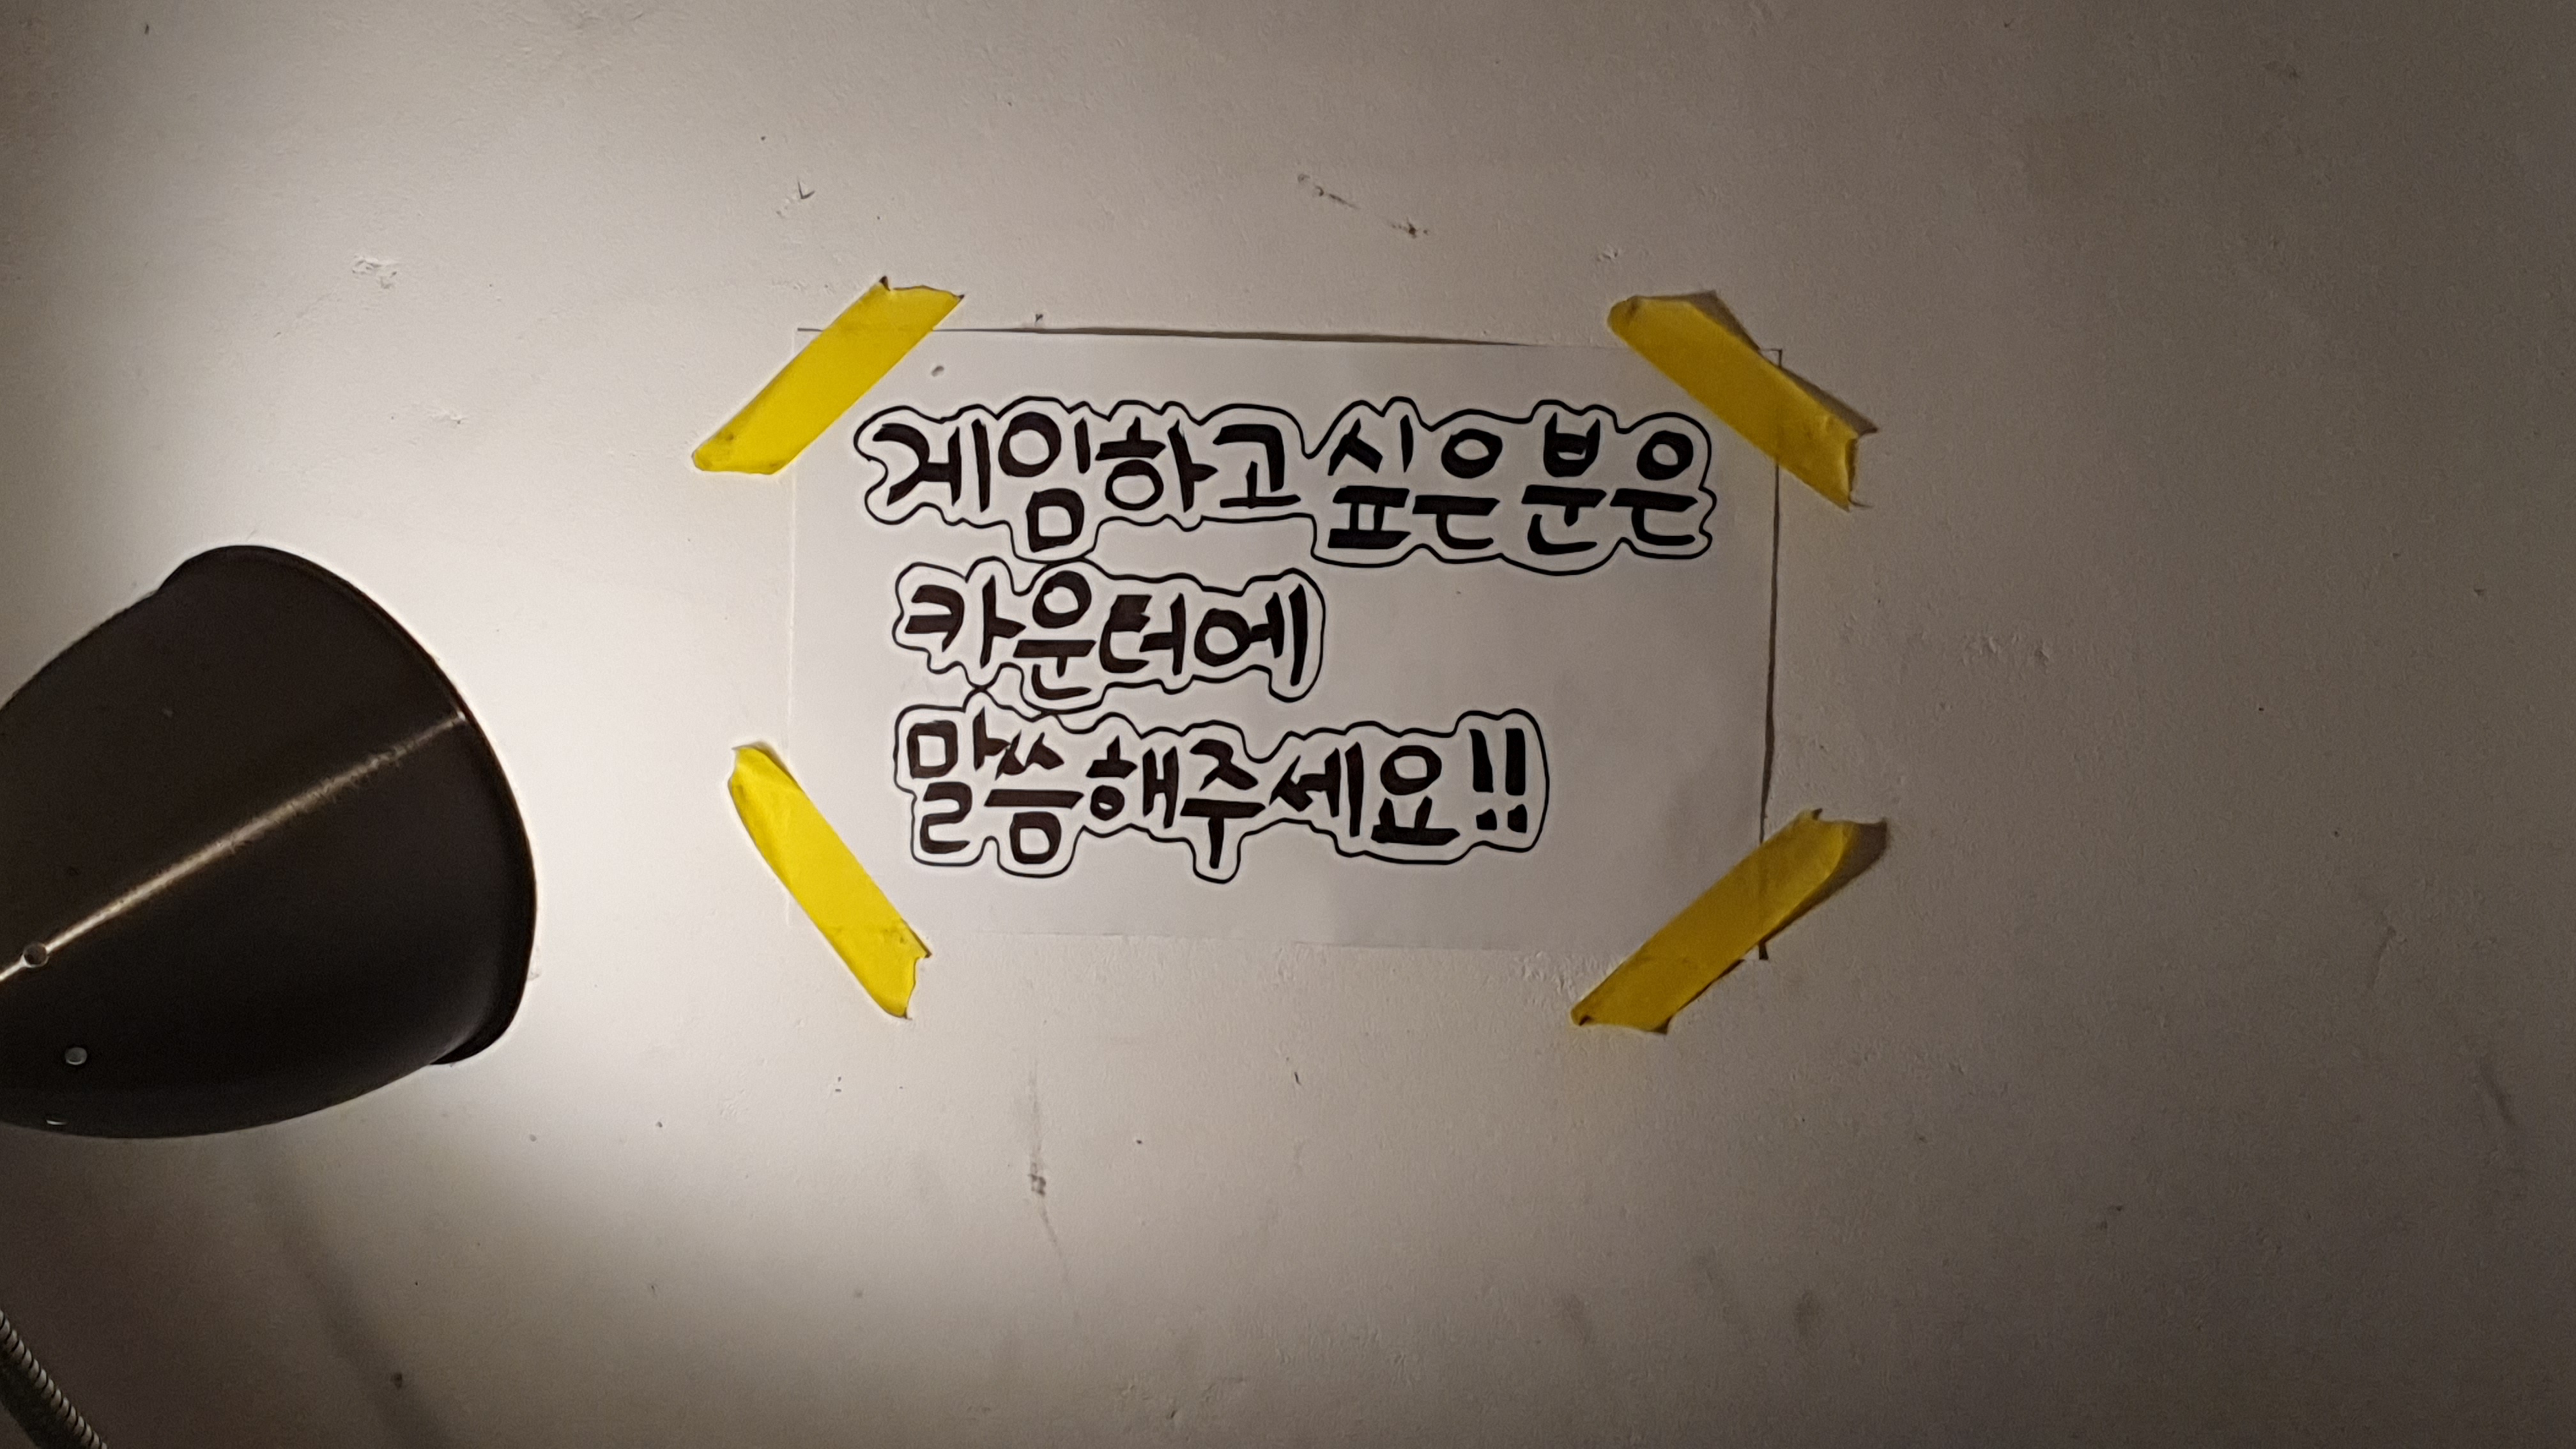 게임하고 싶은 분은
카운터에
말씀해주세요!!